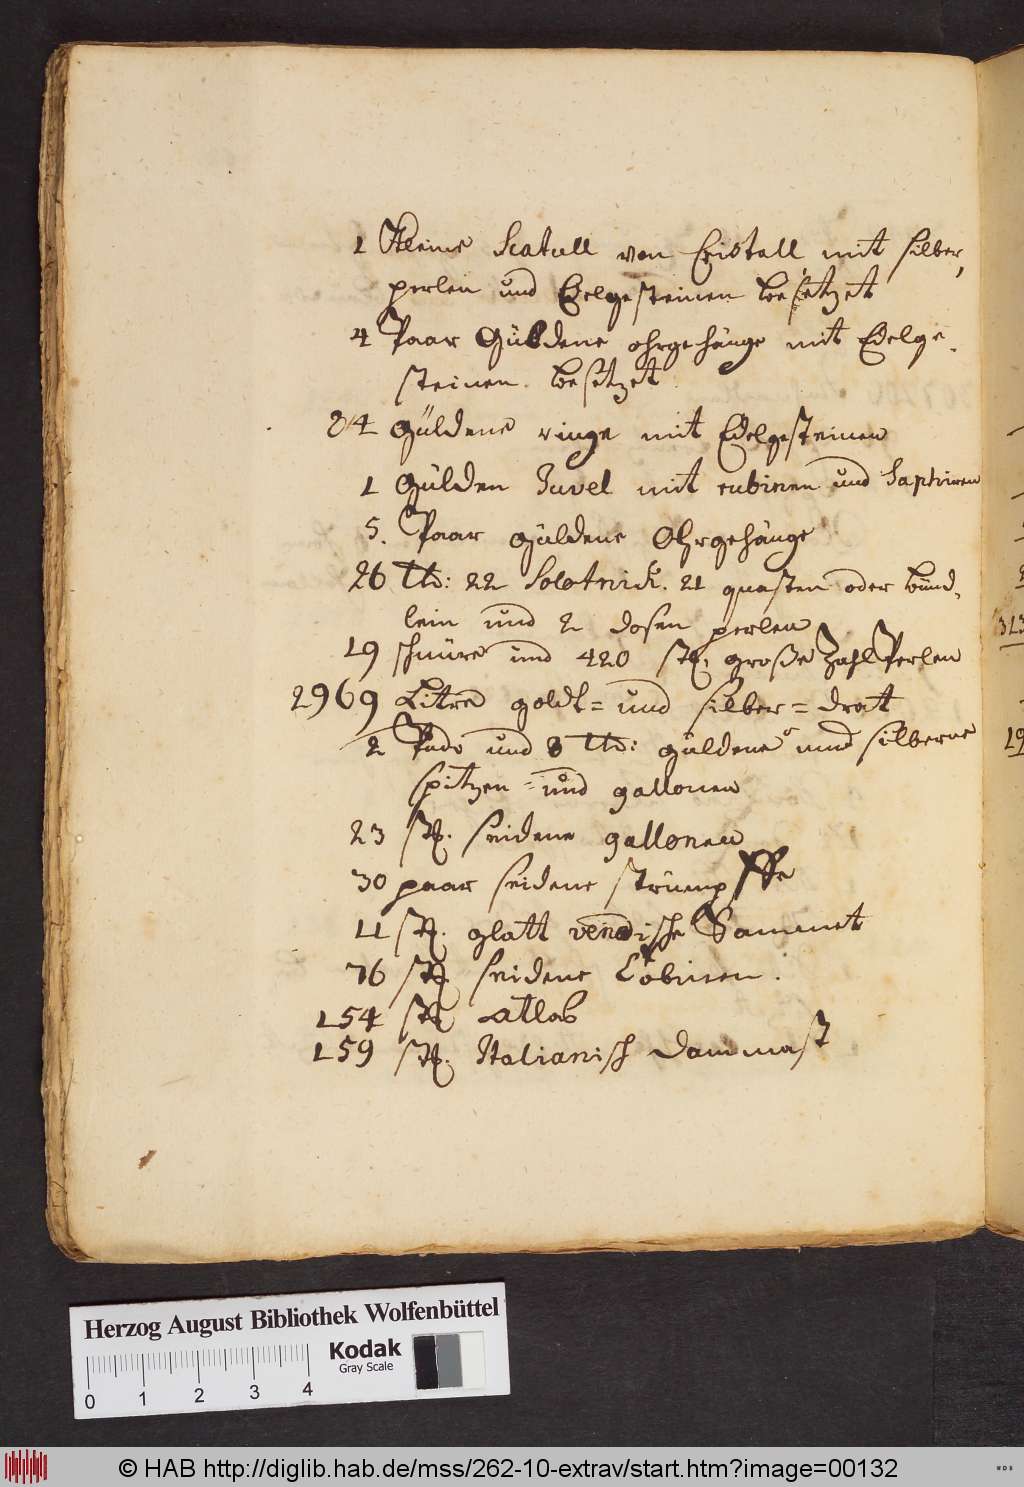 1 Kleine Scatull von Cristall mit silber,
perlen und Edelgesteinen besetzet
4 Paar Güldene ohrgehänge mit Edelge-
steinen besetzet
84 Güldene ringe mit Edelgesteinen
1 Gülden Juvel mit rubinen und Saphiren
5. Paar güldene Ohrgehänge
26 ℔: 22 Solotnick. 21 quasten oder bünd-
lein und 2 dosen perlen
19 schnüre und 420 st. große Zahl Perlen
2969 Litre goldt= und silber=drat
2 Pudo und 8 ℔: güldene und silberne
spitzen= und gallonen
23 st. seidene gallonen
30 paar seidene strümpffe
11 st. glatt venedische Sammet
76 st. seidene
154 st. atlas
159 st. Italianisch dammast
Herzog August Bibliothek Wolfenbüttel
Kodak
Gray Scale
0 1 2 3 4
© HAB http://diglib.hab.de/mss/262-10-extrav/start.htm?image=00132